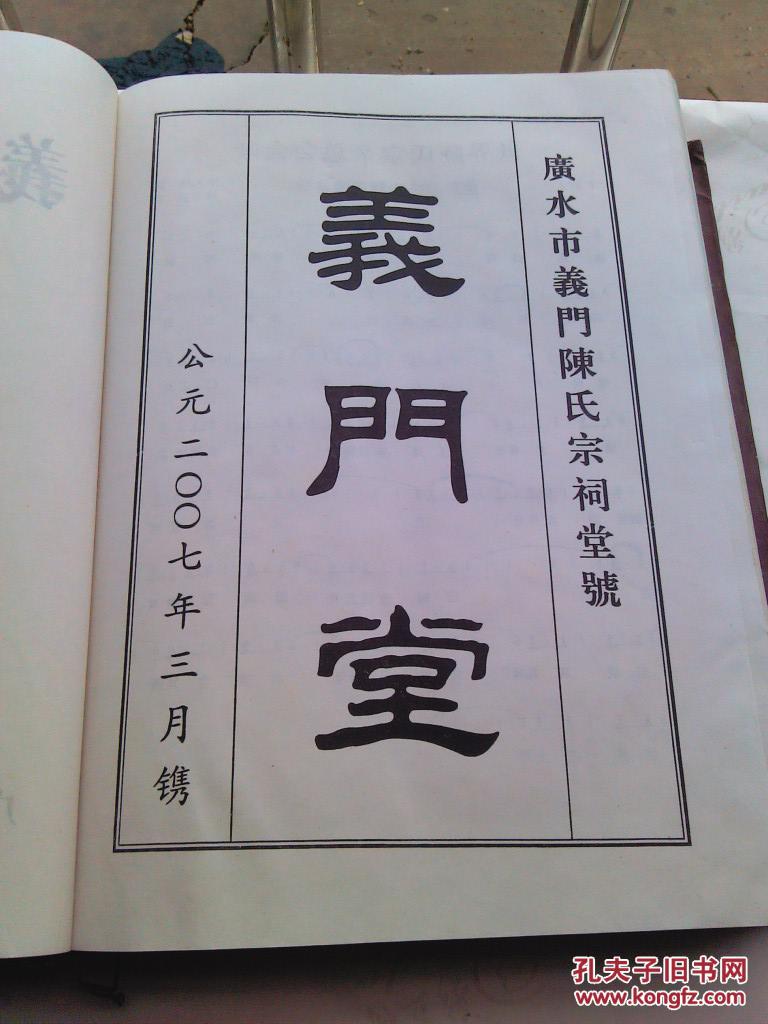 廣水市義門陳氏宗祠堂號
義門堂
公元二〇〇七年三月镌
義
孔夫子旧书网
www.kongfz.com